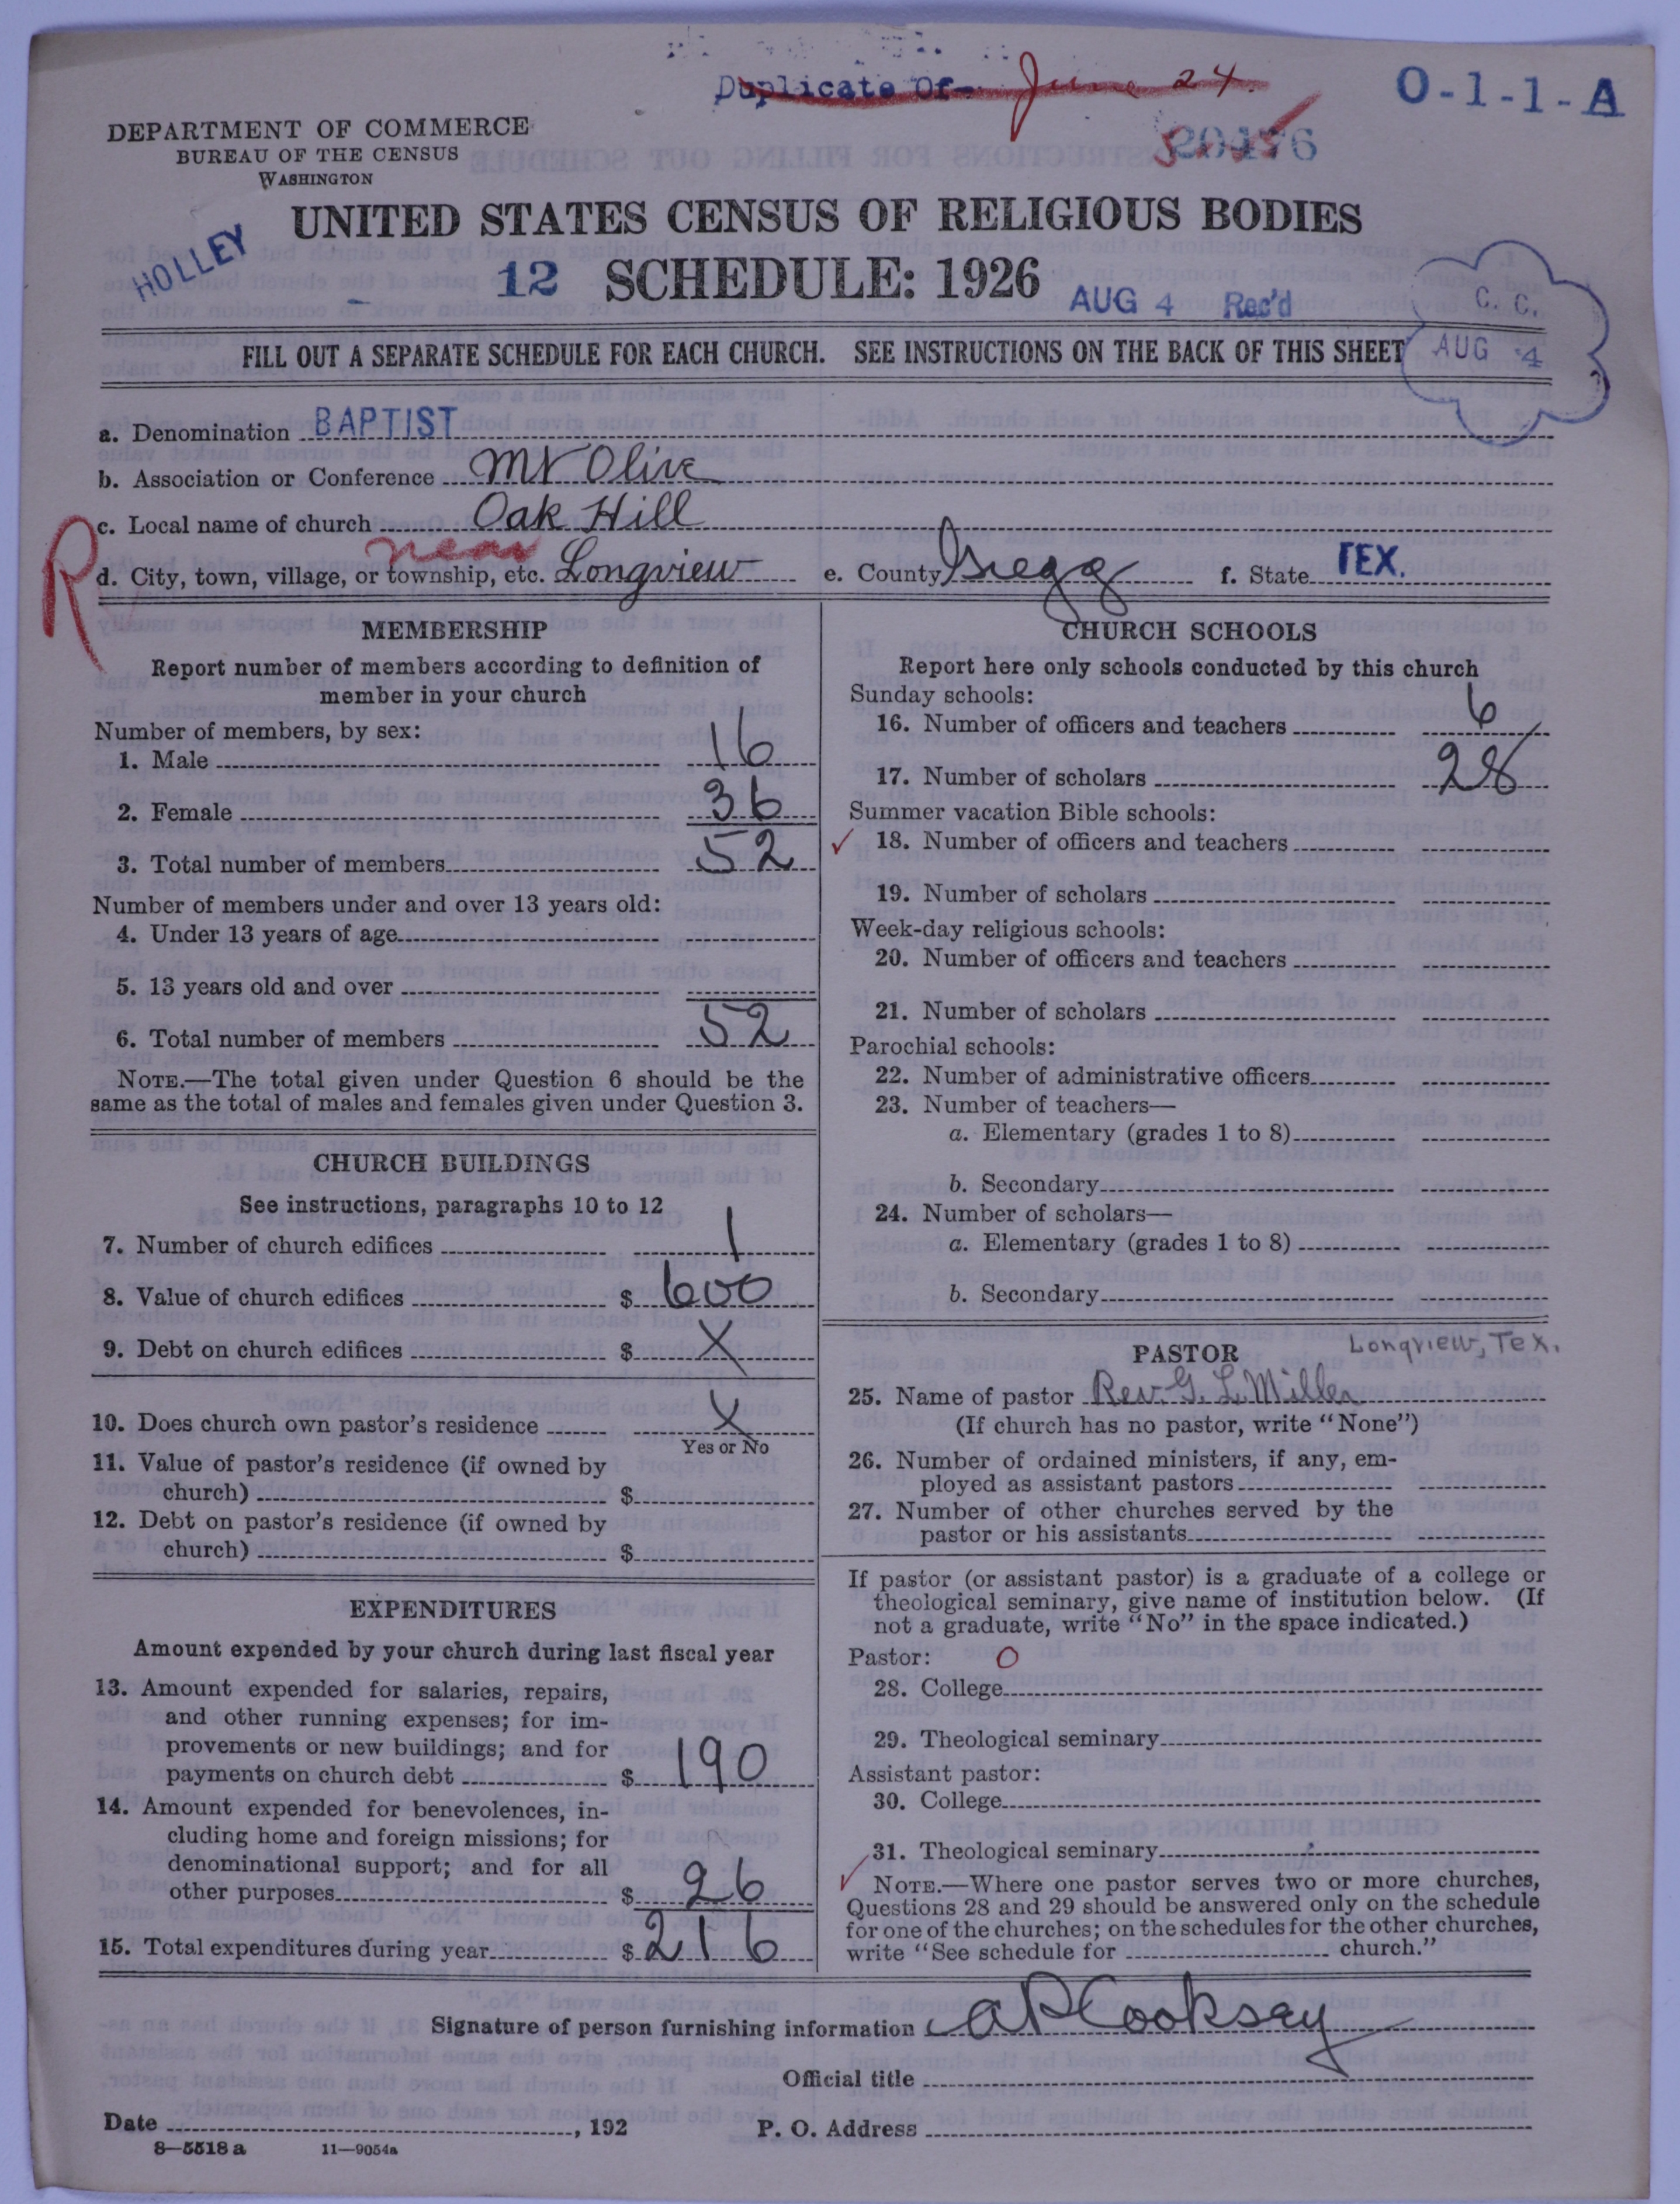 Duplicate Of- June 24.
O-1-1-A
DEPARTMENT OF COMMERCE
BUREAU OF THE CENSUS
WASHINGTON
UNITED STATES CENSUS OF RELIGIOUS BODIES
HOLLEY
12 SCHEDULE: 1926
AUG 4 Rec'd
C. C.
AUG 4
FILL OUT A SEPARATE SCHEDULE FOR EACH CHURCH. SEE INSTRUCTIONS ON THE BACK OF THIS SHEET
a. Denomination BAPTIST
b. Association or Conference Mt Olive
c. Local name of church Oak Hill
R
d. City, town, village, or township, etc. near Longview e. County Gregg f. State TEX.
MEMBERSHIP
Report number of members according to definition of
member in your church
Number of members, by sex:
1. Male 16
2. Female 36
3. Total number of members 52
Number of members under and over 13 years old:
4. Under 13 years of age
5. 13 years old and over
6. Total number of members 52
NOTE.—The total given under Question 6 should be the
same as the total of males and females given under Question 3.
CHURCH BUILDINGS
See instructions, paragraphs 10 to 12
7. Number of church edifices 1
8. Value of church edifices $ 600
9. Debt on church edifices $ X
10. Does church own pastor's residence X
Yes or No
11. Value of pastor's residence (if owned by
church) $
12. Debt on pastor's residence (if owned by
church) $
EXPENDITURES
Amount expended by your church during last fiscal year
13. Amount expended for salaries, repairs,
and other running expenses; for im-
provements or new buildings; and for
payments on church debt $ 190
14. Amount expended for benevolences, in-
cluding home and foreign missions; for
denominational support; and for all
other purposes $ 26
15. Total expenditures during year $ 216
CHURCH SCHOOLS
Report here only schools conducted by this church
Sunday schools:
16. Number of officers and teachers 6
17. Number of scholars 28
Summer vacation Bible schools:
18. Number of officers and teachers
19. Number of scholars
Week-day religious schools:
20. Number of officers and teachers
21. Number of scholars
Parochial schools:
22. Number of administrative officers
23. Number of teachers—
a. Elementary (grades 1 to 8)
b. Secondary
24. Number of scholars—
a. Elementary (grades 1 to 8)
b. Secondary
PASTOR Longview, Tex.
25. Name of pastor Rev. G. L. Miller
(If church has no pastor, write "None")
26. Number of ordained ministers, if any, em-
ployed as assistant pastors
27. Number of other churches served by the
pastor or his assistants
If pastor (or assistant pastor) is a graduate of a college or
theological seminary, give name of institution below. (If
not a graduate, write "No" in the space indicated.)
Pastor: O
28. College
29. Theological seminary
Assistant pastor:
30. College
31. Theological seminary
NOTE.—Where one pastor serves two or more churches,
Questions 28 and 29 should be answered only on the schedule
for one of the churches; on the schedules for the other churches,
write "See schedule for church."
Signature of person furnishing information A P Cooksey
Official title
Date , 192 P. O. Address
8—5518 a 11—9054a